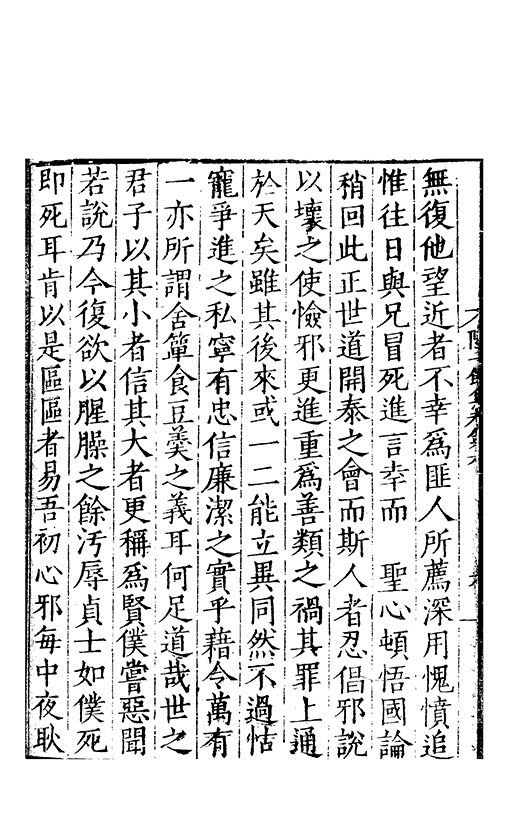 無復他望近者不幸爲匪人所薦深用愧憤追
惟往日與兄冒死進言幸而　聖心頓悟國論
稍回此正世道開泰之會而斯人者忍倡邪說
以壞之使憸邪更進重爲善類之禍其罪上通
於天矣雖其後來或一二能立異同然不過怙
寵爭進之私寧有忠信廉潔之實乎藉令萬有
一亦所謂舍簞食豆羹之義耳何足道哉世之
君子以其小者信其大者更稱爲賢僕嘗惡聞
若說乃今復欲以腥臊之餘汚辱貞士如僕死
即死耳肯以是區區者易吾初心邪每中夜耿